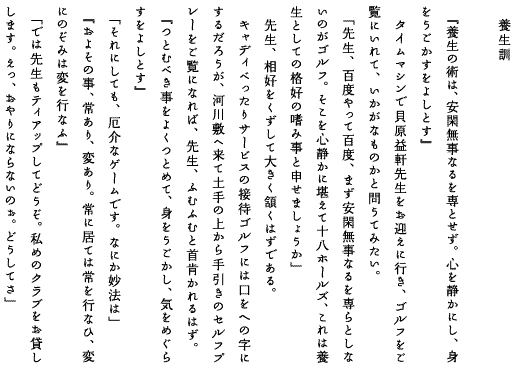 養生訓
『養生の術は、安閑無事なるを専とせず。心を静かにし、身
をうごかすをよしとす』
タイムマシンで貝原益軒先生をお迎えに行き、ゴルフをご
覧にいれて、いかがなものかと問うてみたい。
「先生、百度やって百度、まず安閑無事なるを専らとしな
いのがゴルフ。そこを心静かに堪えて十八ホールズ、これは養
生としての格好の嗜み事と申せましょうか」
先生、相好をくずして大きく頷くはずである。
キャディべったりサービスの接待ゴルフには口をへの字に
するだろうが、河川敷へ来て土手の上から手引きのセルフプ
レーをご覧になれば、先生、ふむふむと首肯かれるはず。
『つとむべき事をよくつとめて、身をうごかし、気をめぐら
すをよしとす』
「それにしても、厄介なゲームです。なにか妙法は」
『およその事、常あり、変あり。常に居ては常を行なひ、変
にのぞみは変を行なふ』
「では先生もティアップしてどうぞ。私めのクラブをお貸し
します。えっ、おやりにならないのぉ。どうしてさ」